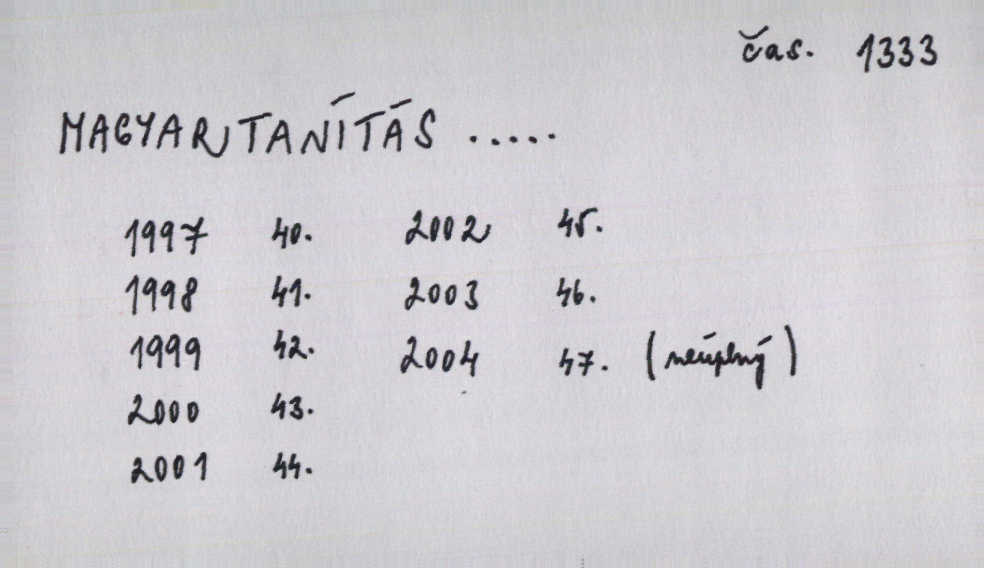 čas. 1333
MAGYARTANÍTÁS .....
1997 40. 2002 45.
1998 41. 2003 46.
1999 42. 2004 47. (neúplný)
2000 43.
2001 44.